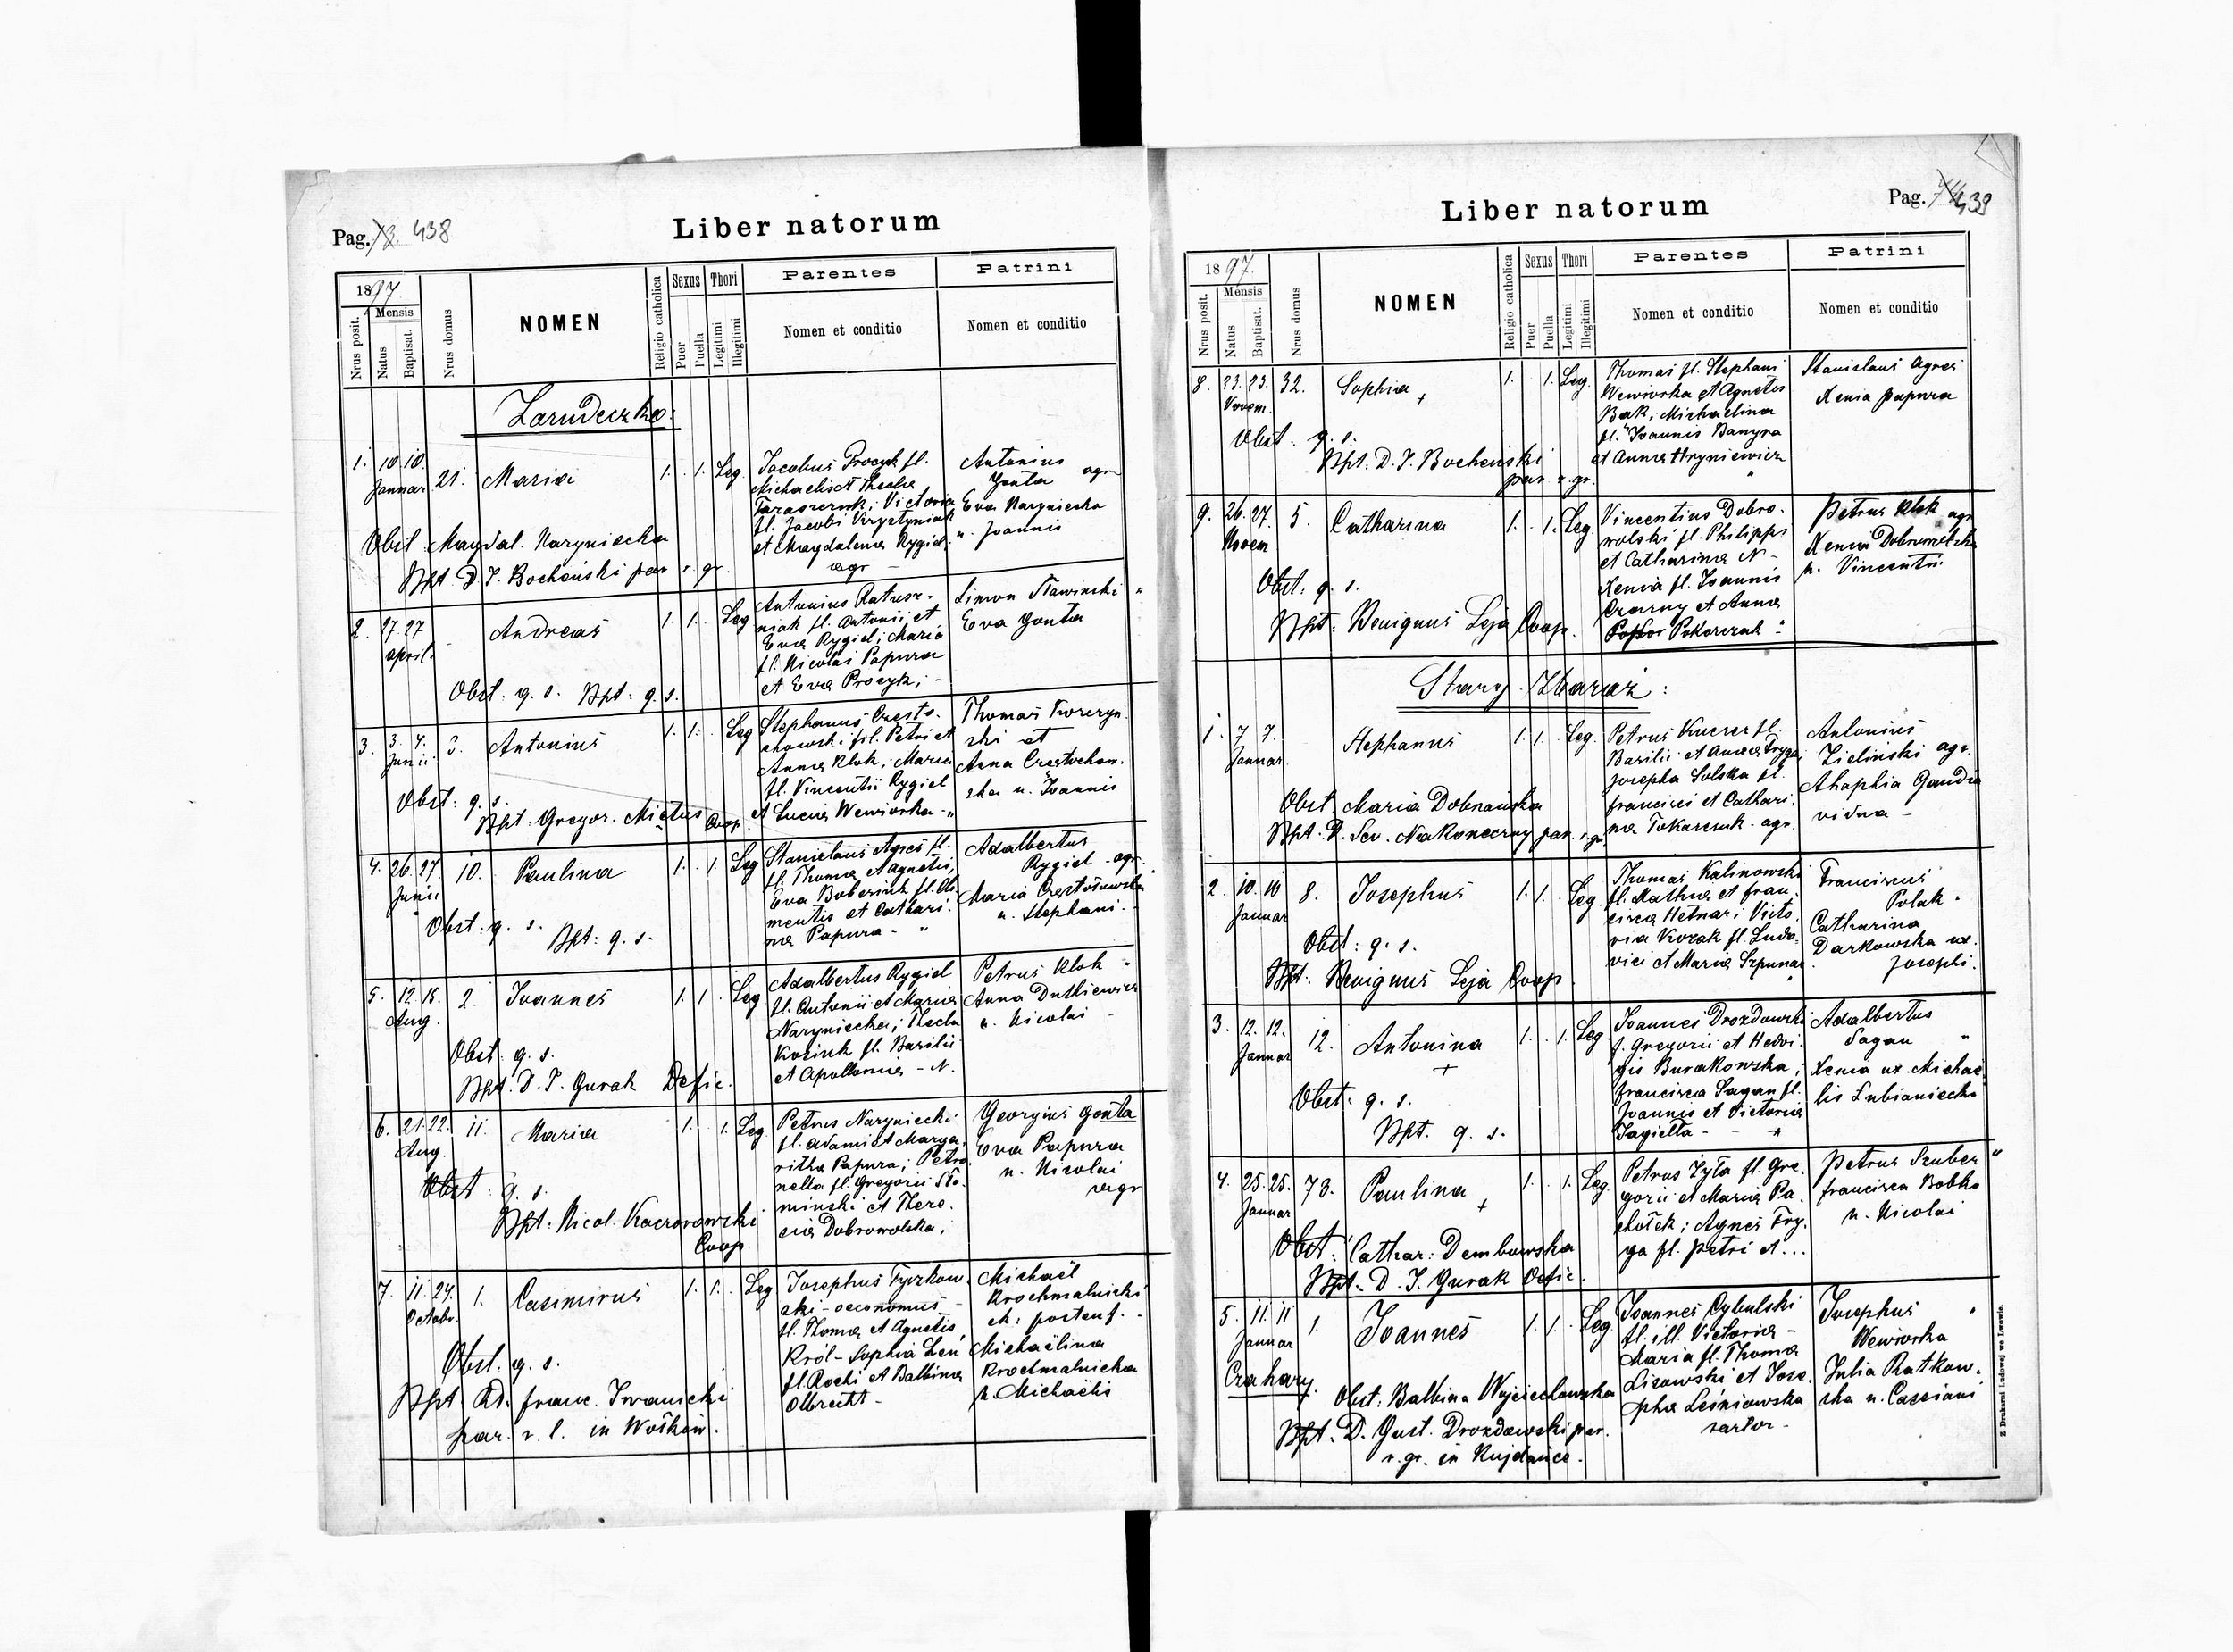 Pag. 73. 438
Liber natorum
1897
Mensis
Nrus posit.
Natus
Baptisat.
Nrus domus
NOMEN
Religio catholica
Sexus
Puer
Puella
Thori
Legitimi
Illegitimi
Parentes
Nomen et conditio
Patrini
Nomen et conditio
Zarudeczko:
1. 10. 10. Januar 21. Maria 1. . 1. Leg.
Jacobus Procyk fl.
Michaelis et Thecla
Taraszczuk; Victoria
fl. Jacobi Krzyżyniak
et Magdalena Rygiel;
agr -
Antonius
Gonta agr
Eva Naryniecka
u. Joannis
Obst. Magdal. Naryniecka
Bpt. D. J. Bocheński par. r. gr.
2. 27. 27 April. - Andreas 1. 1. Leg
Antonius Ratusz-
niak fl. Antonii et
Eva Rygiel; Maria
fl. Nicolai Papura
et Eva Procyk; -
Simon Sławinski "
Eva Gonta
Obst. q. s. Bpt: q. s.
3. 3. 4. Junii. 3. Antonius 1. 1. Leg
Stephanus Często-
chowski fil. Petri et
Anna Klok; Maria
fl. Vincentii Rygiel
et Lucia Wewiorka - "
Thomas Tworzyn
ski et
Anna Częstochow.
ska u. Joannis
Obst: q. s.
Bpt. Gregor. Mictus Coop.
4. 26. 27. Junii 10. Paulina 1. . 1. Leg
Stanislaus Agres fl.
fl. Thoma et Agnetis,
Eva Boberink fl. Cle
mentis et Cathari-
na Papura - "
Adalbertus
Rygiel - agr.
Maria Częstochowska
u. Stephani.
Obst: q. s.
Bpt: q. s.
5. 12. 15. Aug. 2. Joannes 1. 1. Leg
Adalbertus Rygiel
fl. Antonii et Maria
Naryniecka; Thecla
Koziuk fl. Basilii
et Apollonia - N.
Petrus Klok "
Anna Dutkiewicz
u. Nicolai -
Obst: q. s.
Bpt. D. J. Gurak Defic.
6. 21. 22. Aug. 11. Maria 1. . 1. Leg
Petrus Naryniecki
fl. Adami et Marga.
ritha Papura; Petro
nella fl. Gregorii Sło.
minski et There.
sia Dobrowolska;
Georgius Gonta
Eva Papura
u. Nicolai
agr
Obst: q. s.
Bpt: Nicol. Kaczorowski
Coop
7. 11. 24. Octobr. 1. Casimirus 1. 1. Leg
Josephus Tyczkow.
ski - oeconomus -
fl. Thoma et Agnetis
Król - Sophia Len
fl. Rochi et Balbina
Olbrecht -
Michaël
Krochmalnicki
Michaëlina
Krochmalnicka
u. Michaëlis
Obst. q. s.
Bpt. Rd. Franc. Iwanicki
par. r. l. in Wołków.
Pag. 74. 439
Liber natorum
1897.
Mensis
Nrus posit.
Natus
Baptisat.
Nrus domus
NOMEN
Religio catholica
Sexus
Puer
Puella
Thori
Legitimi
Illegitimi
Parentes
Nomen et conditio
Patrini
Nomen et conditio
8. 23. 23. Novem. 32. Sophia + 1. . 1. Leg.
Thomas fl. Stephani
Wewiorka et Agnetis
Bak; Michaelina
fl. Joannis Banyra
et Anna Hryniewicz
"
Stanislaus Agres
Xenia Papura
Obst: q. s.
Bpt: D. J. Bocheński
par r. gr.
9. 26. 27. Novem 5. Catharina 1. . 1. Leg.
Vincentius Dobro-
wolski fl. Philippi
et Catharina N -
Xenia fl. Joannis
Czarny et Anna
Pokorczak "
Petrus Klok agr
Xenia Dobrowolska
u. Vincentii
Obst: q. s.
Bpt: Benignus Leja Coop.
Stary Zbaraż:
1. 7 7. Januar. Stephanus 1. 1. Leg.
Petrus Kucer fl.
Basilii et Anna Fryga;
Josepha Solska fl.
Francisci et Cathari.
na Tokarczuk - agr.
Antonius
Zielinski agr.
Ahaphia Gaudia
vidua -
Obst Maria Dobrzańska
Bpt. D. Sev. Nakoneczny par. r. gr
2. 10. 10 Januar 8. Josephus 1. 1. Leg.
Thomas Kalinowski
fl. Mathia et Fran.
cisca Hetnar; Victo.
ria Kozak fl. Ludo-
vici et Maria Szpunar
"
Franciscus
Polak "
Catharina
Darkowska ux.
Josephi.
Obst: q. s.
Bpt: Benignus Leja Coop.
3. 12. 12. Januar 12. Antonina + 1. . 1. Leg
Joannes Drozdowski
f. Gregorii et Hedvi.
gis Burakowska;
Francisca Sagan fl.
Joannis et Victoria
Jagiełła - - "
Adalbertus
Sagan "
Xenia ux. Michaë
lis Lubianiecki
Obst: q. s.
Bpt. q. s.
4. 25. 25. Januar 73. Paulina + 1. . 1. Leg
Petrus Żyła fl. Gre.
gorii et Maria Pa.
chołek; Agnes Fry.
ga fl. Petri et...
Petrus Szuber "
Francisca Bobko
u. Nicolai
Obst: Cathar: Dembowska
Bpt: D. J. Gurak Defic.
5. 11. 11 Januar 1. Joannes 1. 1. Leg.
Czahary.
Joannes Cybulski
fl. ill. Victoria -
Maria fl. Thoma
Lisowski et Jose.
pha Leśniowska
sartor -
Josephus "
Wewiorka
Julia Rutkow.
ska u. Cassiani
Obst: Balbina Wojciechowska
Bpt: D. Gust. Drozdowski par.
r. gr. in Kujdańce.
Z Drukarni Ludowej we Lwowie.